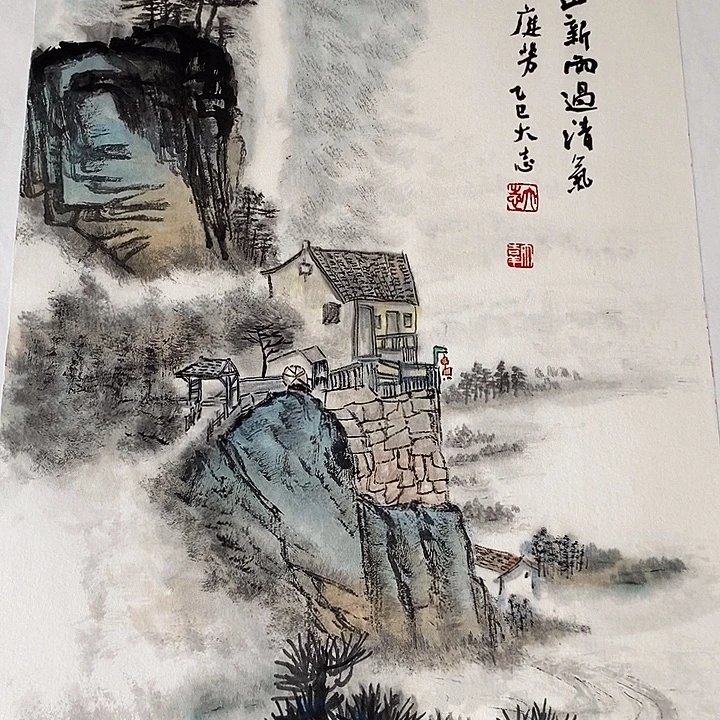 山新雨過清氣
庭芳 乙巳大志
大志